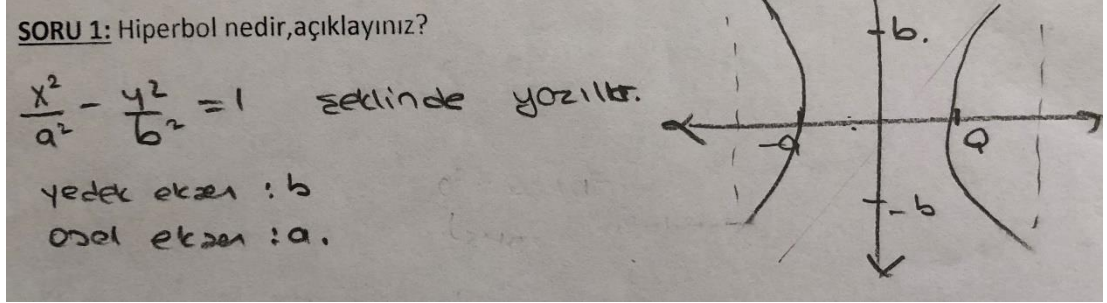 SORU 1: Hiperbol nedir,açıklayınız?
x²/a² - y²/b² = 1 şeklinde yazılır.
yedek eksen : b
asal eksen : a.
b.
-a
a
-b